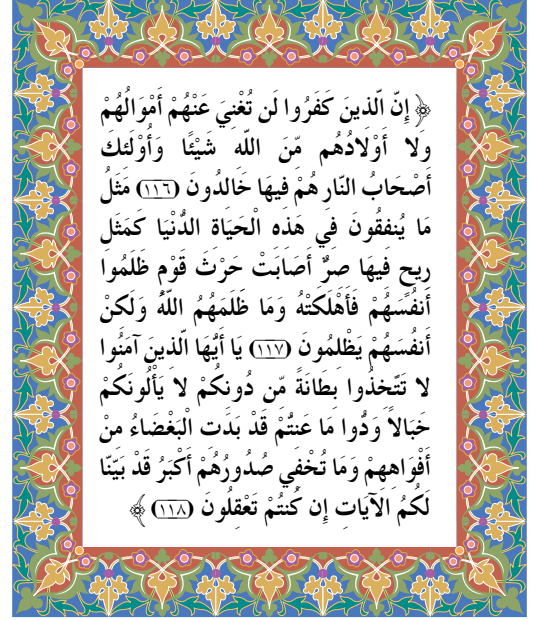 ﴿ إِنّ الّذينَ كَفَرُوا لَن تُغْنيَ عَنْهُمْ أَمْوَالُهُمْ
ولا أوْلَادُهُم مّنَ اللّه شَيْئًا وَأُوْلَئك
أصْحَابُ النّار هُمْ فيهَا خَالدُونَ (١١٦) مَثَلُ
مَا يُنفقُونَ في هَذه الْحَيَاة الدُّنْيَا كَمَثَل
ريح فيهَا صرٌّ أصَابَتْ حَرْثَ قَوْم ظَلَمُوا
أنفُسَهُمْ فَأهْلَكَتْهُ وَمَا ظَلَمَهُمُ اللّهُ وَلَكنْ
أنفُسَهُمْ يَظْلمُونَ (١١٧) يَا أيُّهَا الّذينَ آمَنُوا
لا تَتّخذُوا بطَانَةً مّن دُونكُمْ لا يَألُونَكُمْ
خَبَالاً وَدُّوا مَا عَنتُّمْ قَدْ بَدَت الْبَغْضَاءُ منْ
أفْوَاههمْ وَمَا تُخْفي صُدُورُهُمْ أكْبَرُ قَدْ بَيّنّا
لَكُمُ الآيَات إن كُنتُمْ تَعْقلُونَ (١١٨) ﴾